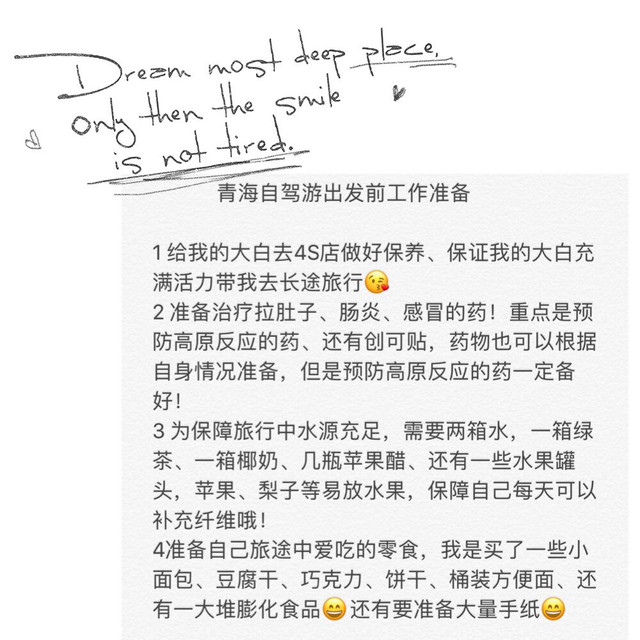 Dream most deep place,
only then the smile
is not tired.
青海自驾游出发前工作准备
1 给我的大白去4S店做好保养、保证我的大白充
满活力带我去长途旅行😘
2 准备治疗拉肚子、肠炎、感冒的药！重点是预
防高原反应的药、还有创可贴，药物也可以根据
自身情况准备，但是预防高原反应的药一定备
好！
3 为保障旅行中水源充足，需要两箱水，一箱绿
茶、一箱椰奶、几瓶苹果醋、还有一些水果罐
头，苹果、梨子等易放水果，保障自己每天可以
补充纤维哦！
4准备自己旅途中爱吃的零食，我是买了一些小
面包、豆腐干、巧克力、饼干、桶装方便面、还
有一大堆膨化食品😄还有要准备大量手纸😄